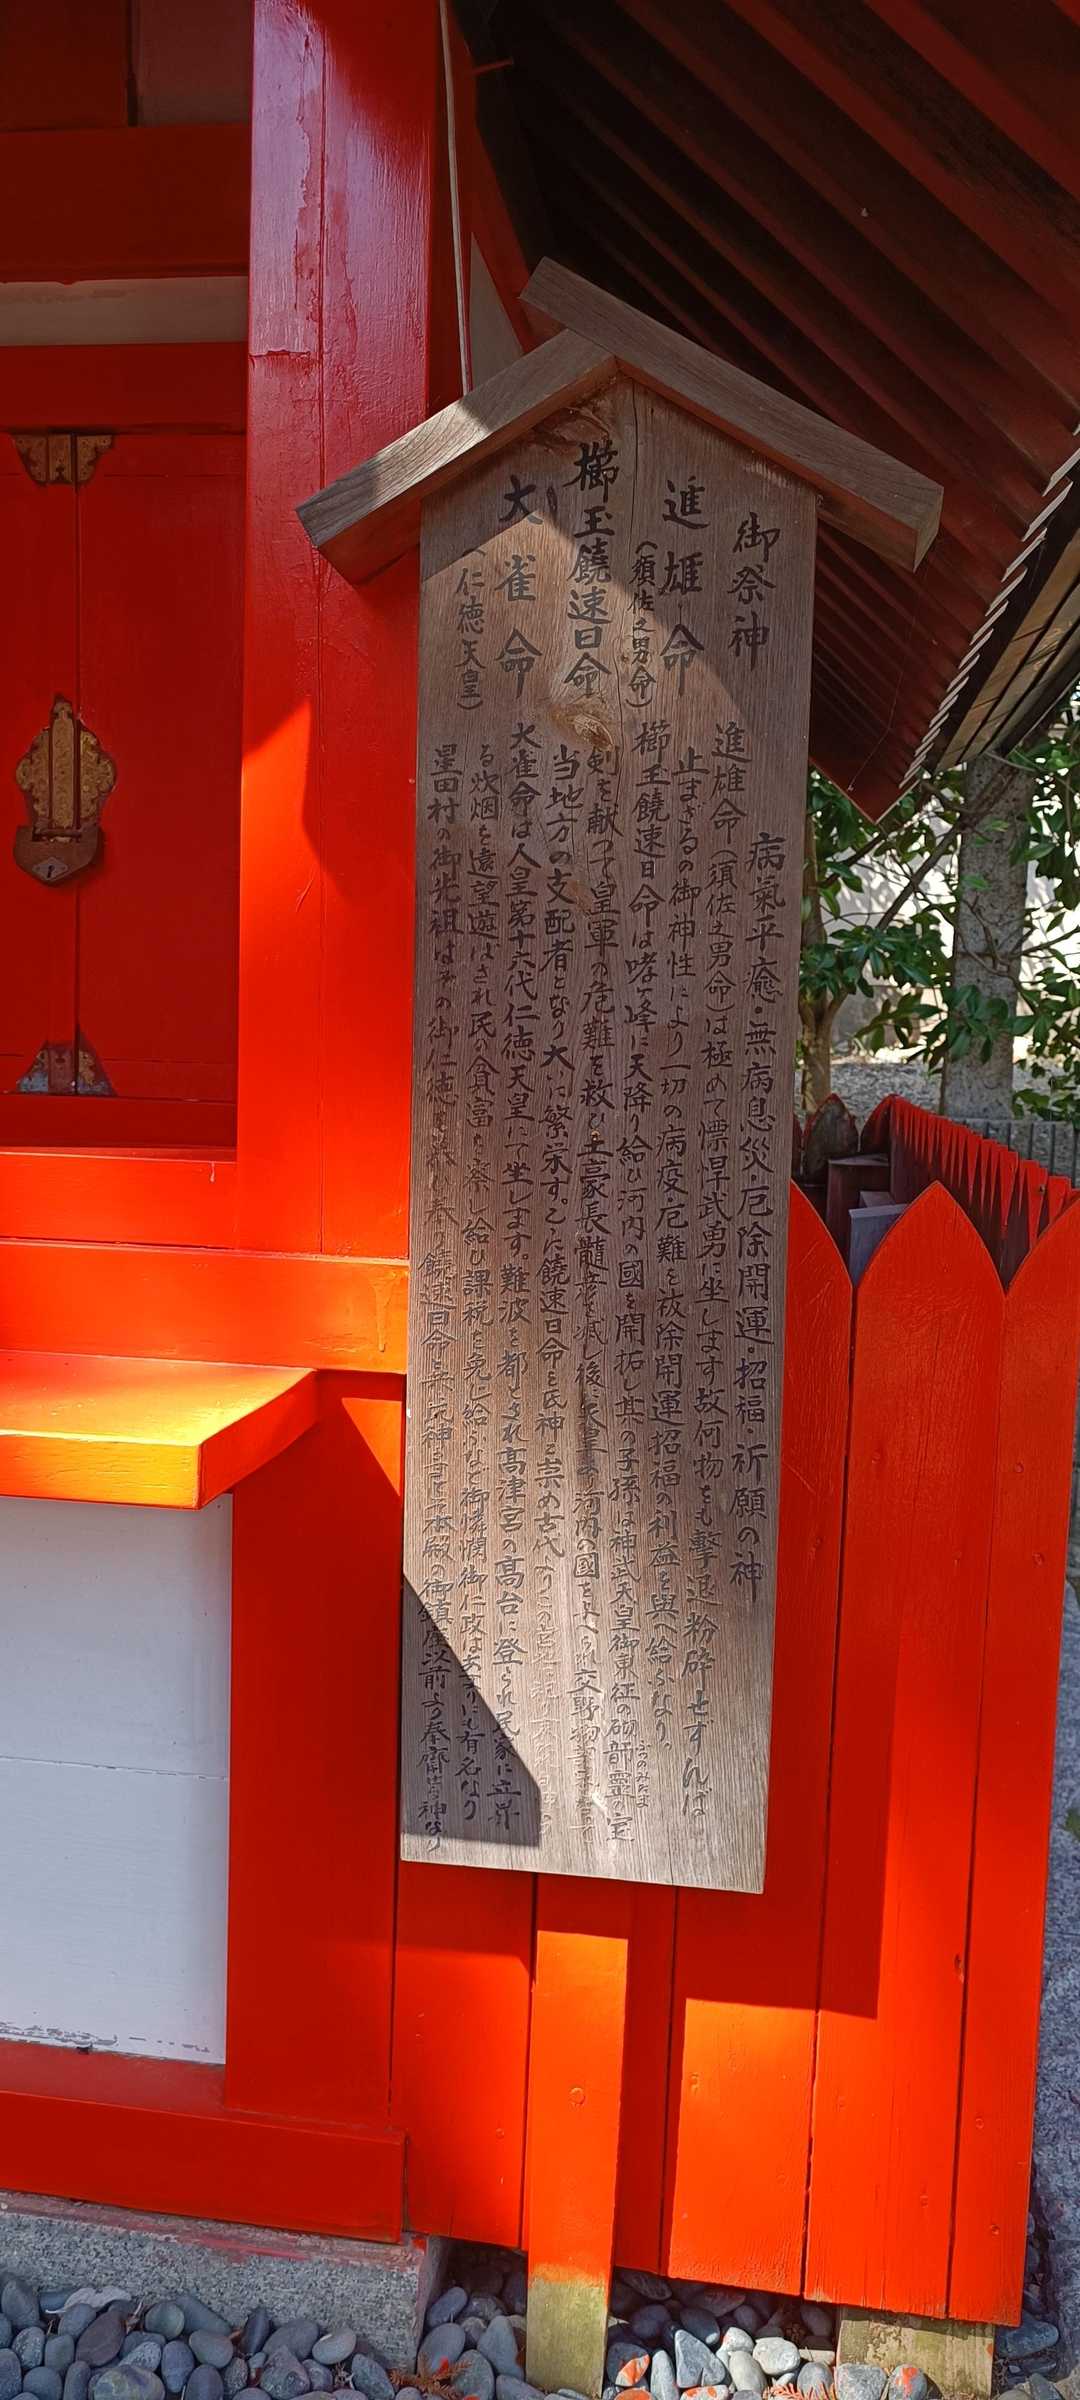 御祭神
進雄命
(須佐之男命)
櫛玉饒速日命
大雀命
(仁徳天皇)
病氣平癒・無病息災・厄除開運・招福・祈願の神
進雄命(須佐之男命)は極めて慓悍武勇に坐します故何物をも撃退粉砕せずんば
止まざるの御神性により一切の病疫・厄難を祓除開運招福の利益を與へ給ふなり。
櫛玉饒速日命は哮ケ峰に天降り給ひ河内の國を開拓し其の子孫は神武天皇御東征の砌韴霊の宝
ふつのみたま
剣を献つて皇軍の危難を救ひ土豪長髓彦を滅し後に天皇より河内の國を 交野物部
当地方の支配者となり大いに繁栄す。乙に饒速日命を氏神と崇め古代よりこの
大雀命は人皇第十六代仁徳天皇にて坐します。難波を都とされ高津宮の高台に登られ民家に立昇
る炊烟を遠望遊ばされ民の貧富を察し給ひ課税を免じ給ふなど御憐憫御仁政は余りにも有名なり
星田村の御先祖はその御仁徳を 奉り饒速日命と 氏神 本殿の御鎮座以前より奉齋 神なり